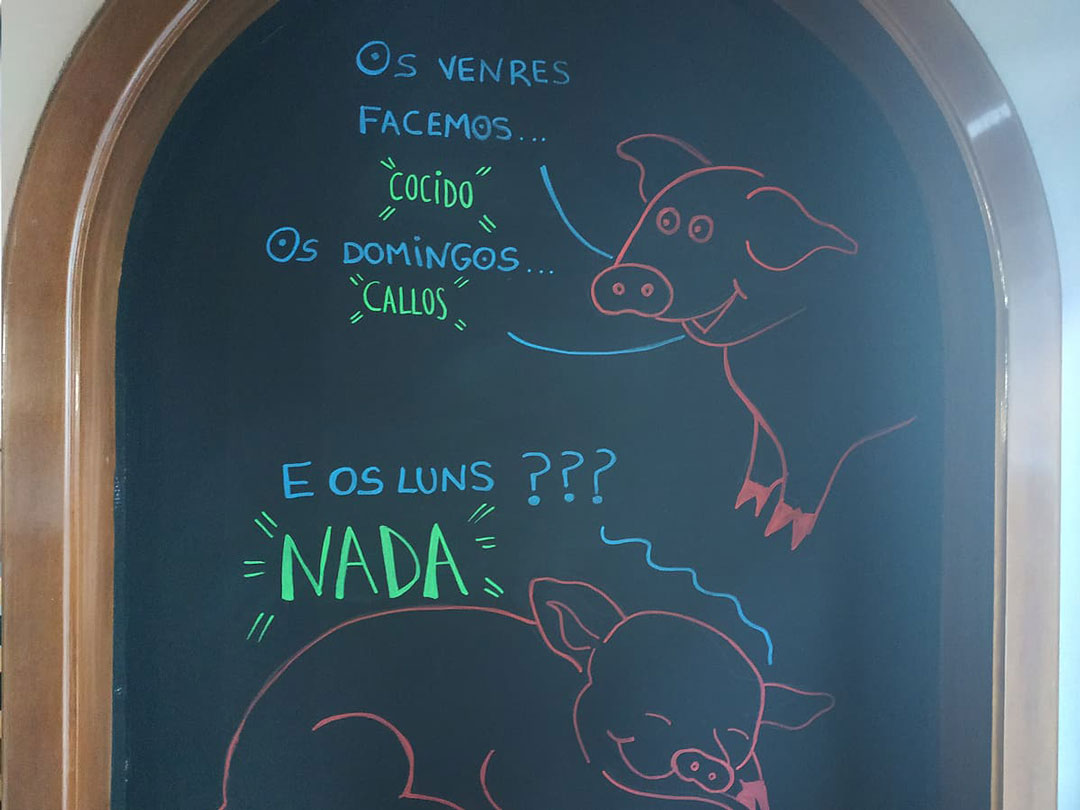 Os VENRES
FACEMOS...
COCIDO
Os DOMINGOS...
CALLOS
E OS LUNS ???
NADA